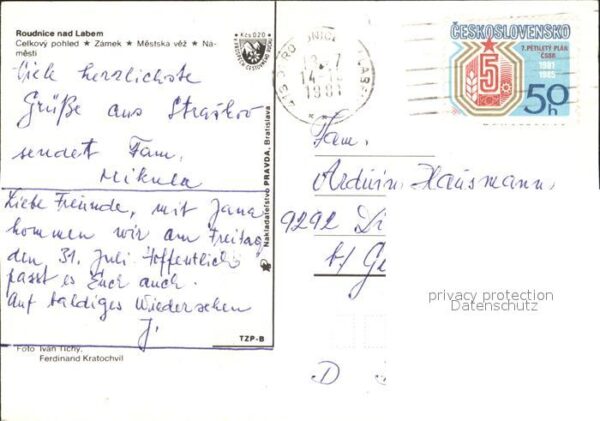 Roudnice nad Labem
Celkový pohled ★ Zámek ★ Městska věž ★ Ná-
městi
Kčs 0,20
Viele herzlichste
Grüße aus Straškov
sendet Fam.
Mikula
Liebe Freunde, mit Jana
kommen wir am Freitag
den 31. Juli. Hoffentlich
passt es Euch auch.
Auf baldiges Wiedersehen
J.
Foto Ivan Tichý,
Ferdinand Kratochvil
TZP-B
Nakladateľstvo PRAVDA, Bratislava
14
1981
ČESKOSLOVENSKO
7. PĚTILETÝ PLÁN
ČSSR
1981
1985
5
50h
Fam.
Arduin Hausmann
9292 Di
b/ Ge
D
privacy protection
Datenschutz